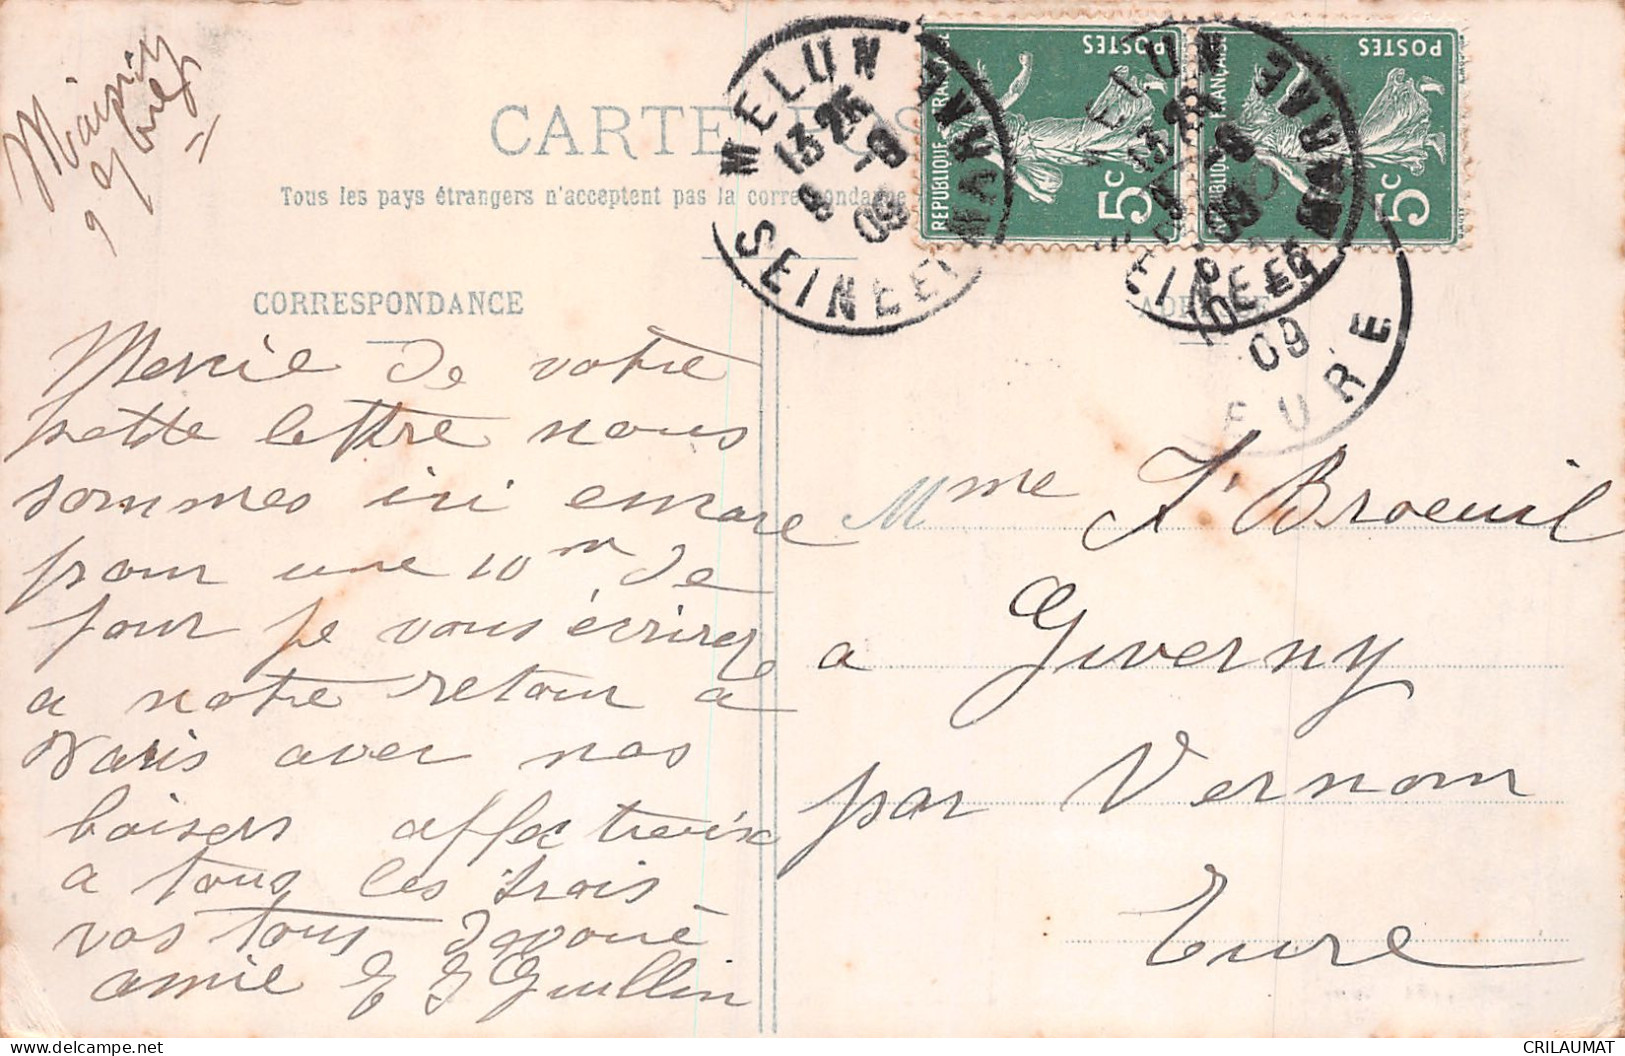 CARTE POS
Tous les pays étrangers n'acceptent pas la correspondance
CORRESPONDANCE
MELUN
13 25
9 -9
09
SEINE ET MARNE
POSTES
REPUBLIQUE FRANÇAISE
5c
MELUN
13 25
-9
09
SEINE ET MARNE
POSTES
REPUBLIQUE FRANÇAISE
5c
09
EURE
Mercie de votre
petite lettre nous
sommes ici encore
pour une 10ne de
jour je vous écrirez
a notre retour à
Paris avec nos
baisers affectueux
a tous les trois
vos tous dévoué
amie E G Guillin
Mme
Broeuil
a Giverny
par Vernon
Eure
CRILAUMAT